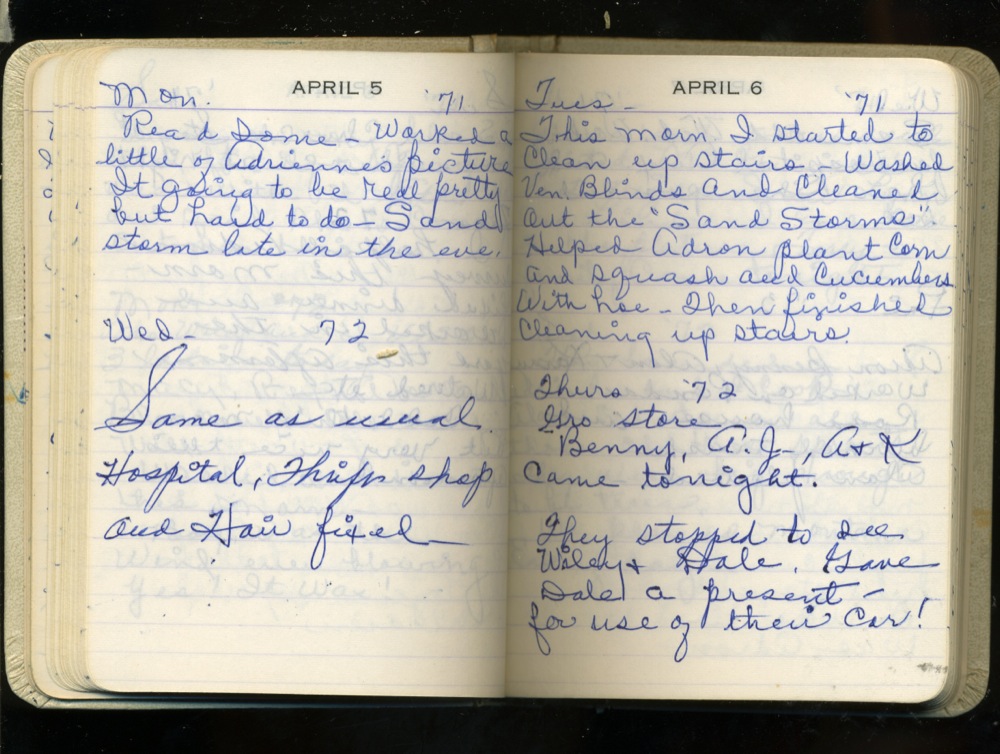 APRIL 5
Mon. '71
Read Some - Worked a
little of Adrienne's picture
It going to be real pretty
but hard to do - Sand
storm late in the eve.
Wed - 72
Same as usual.
Hospital, Thrift shop
and Hair fixed -
APRIL 6
Tues - '71
This morn I started to
Clean up stairs. Washed
Ven. Blinds and Cleaned
out the "Sand Storms".
Helped Adron plant Corn
and Squash and Cucumbers
With hoe - Then finished
Cleaning up stairs.
Thurs '72
Gro store
Benny, A.J-, A+K
Came tonight.
They stopped to see
Wiley + Dale. Gave
Dale a present -
for use of their Car!